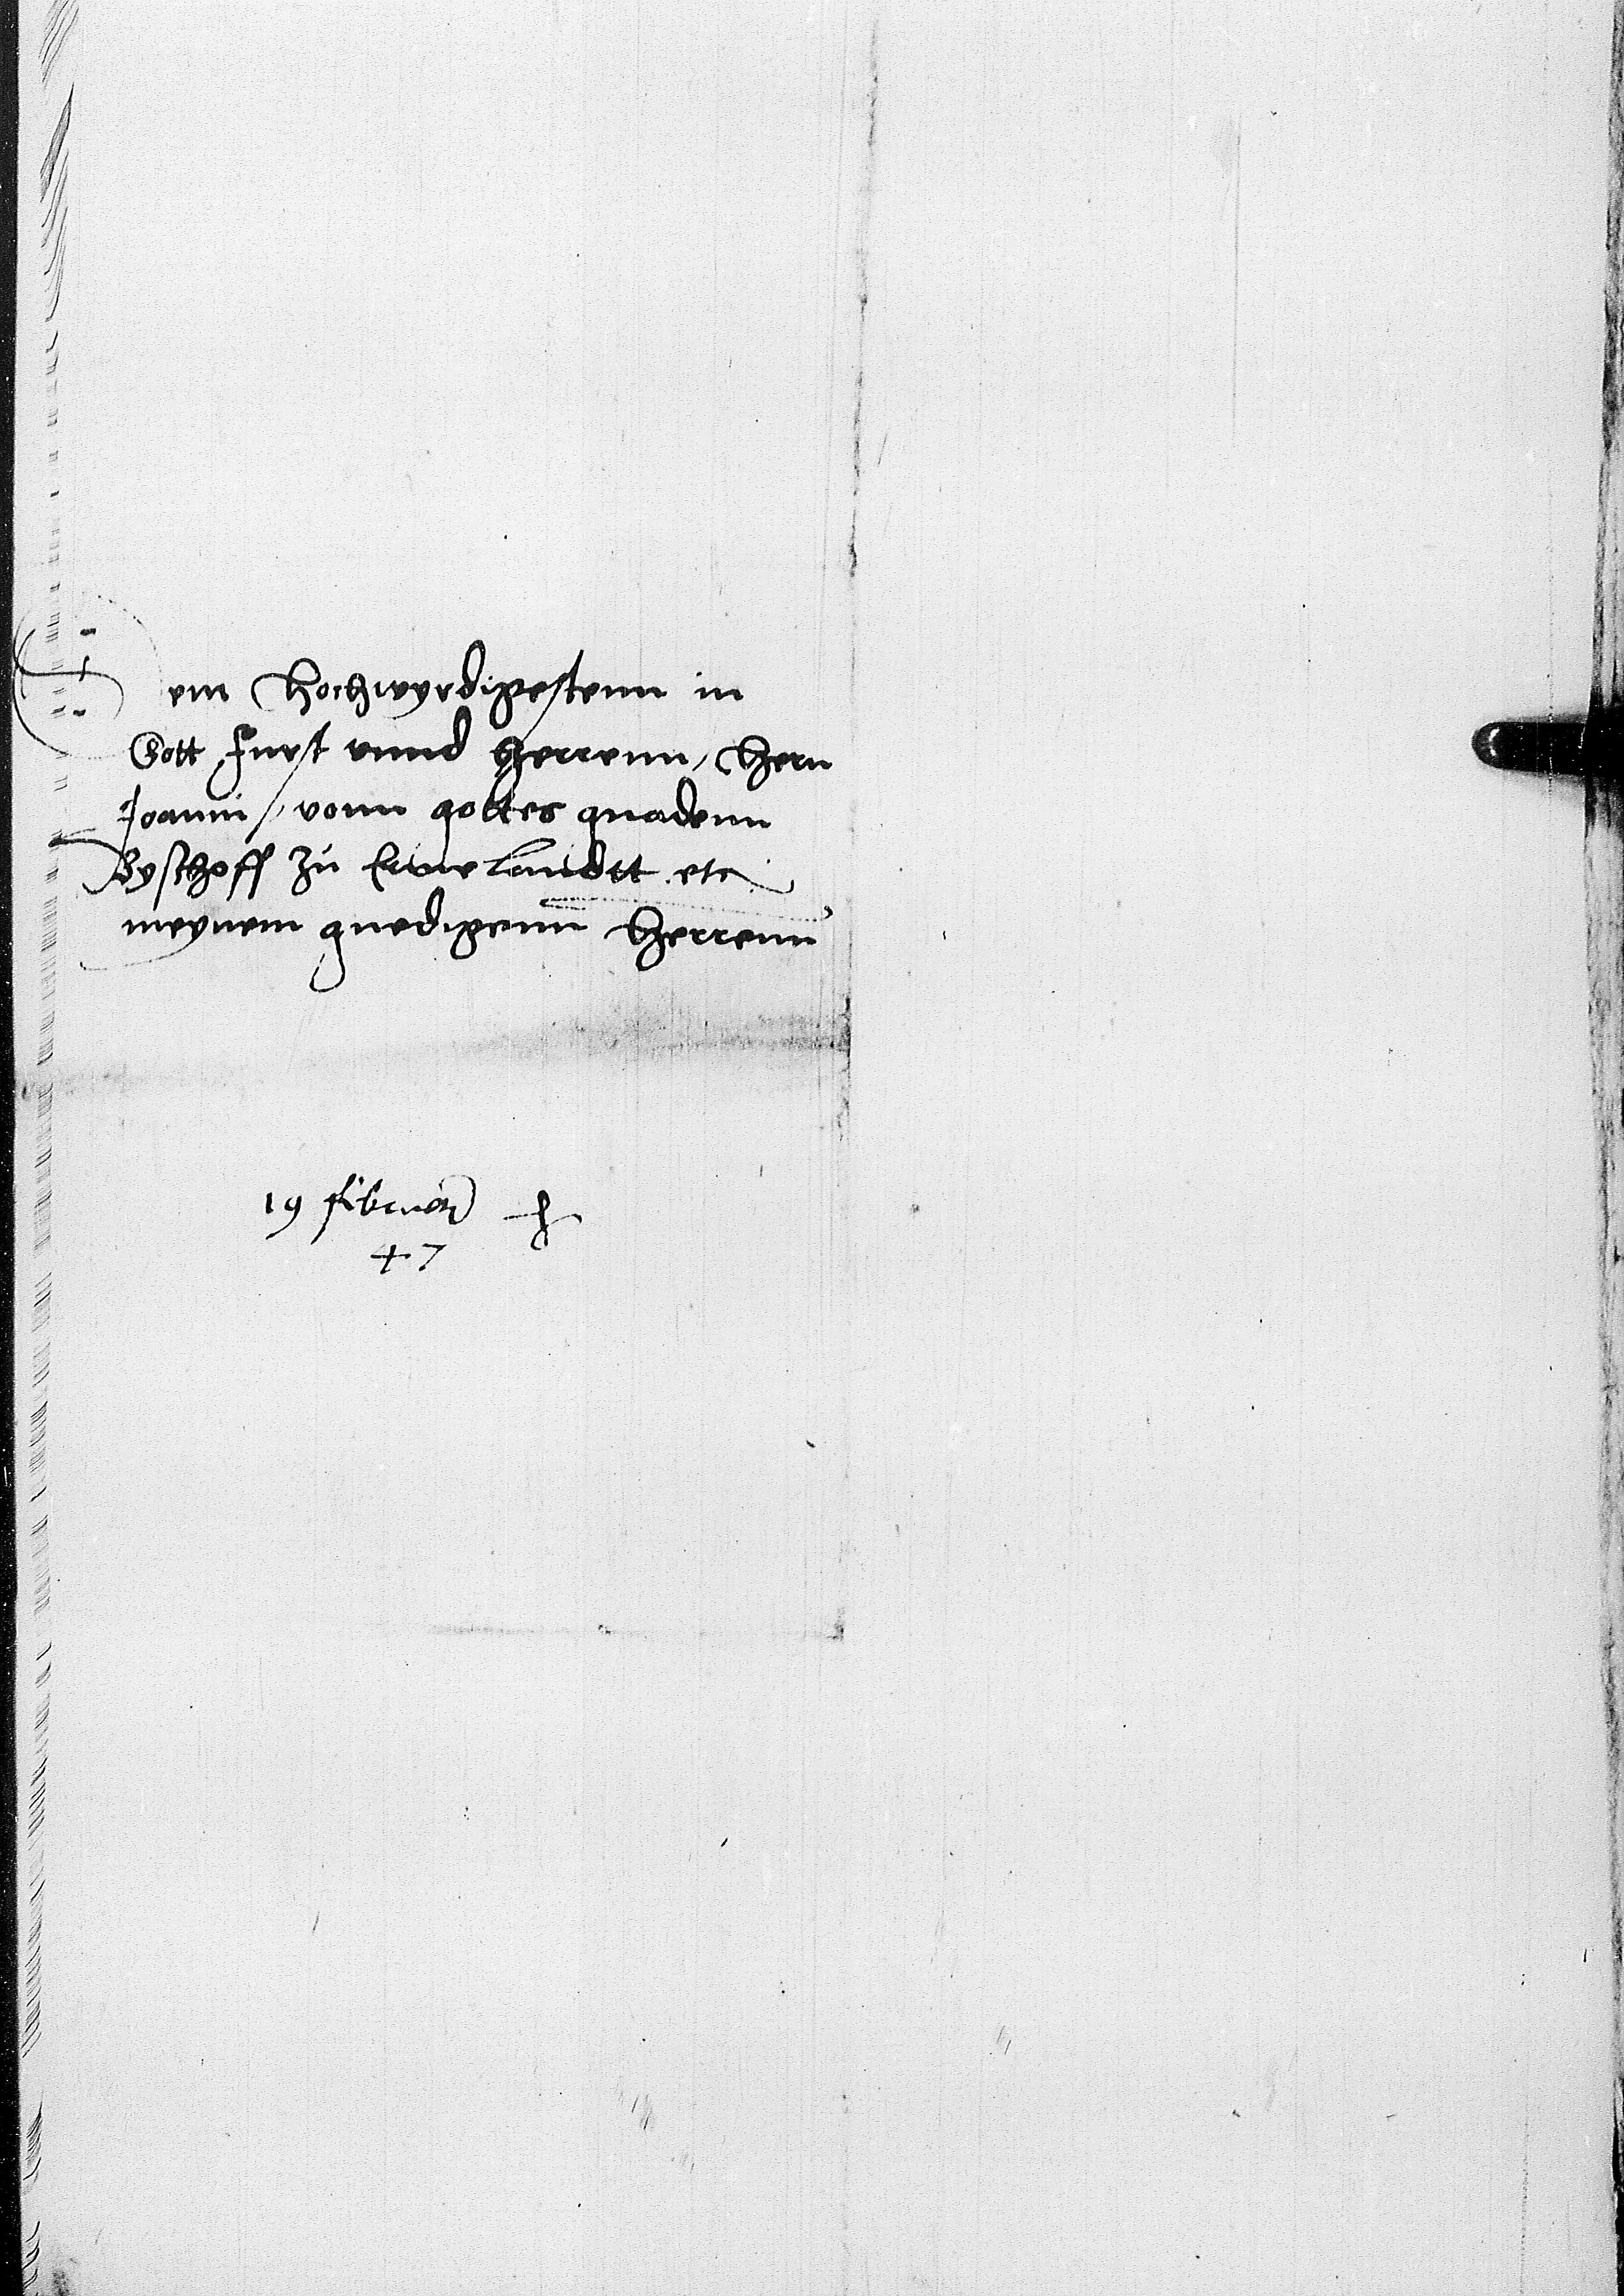 Dem Hochwyrdigestenn in
Gott Furst vnnd Herrenn, Hern
Joanni / vonn gottes gnadenn
Byschoff zu Ermelandtt etc
meynem gnedigenn Herrenn
19 februarij
47